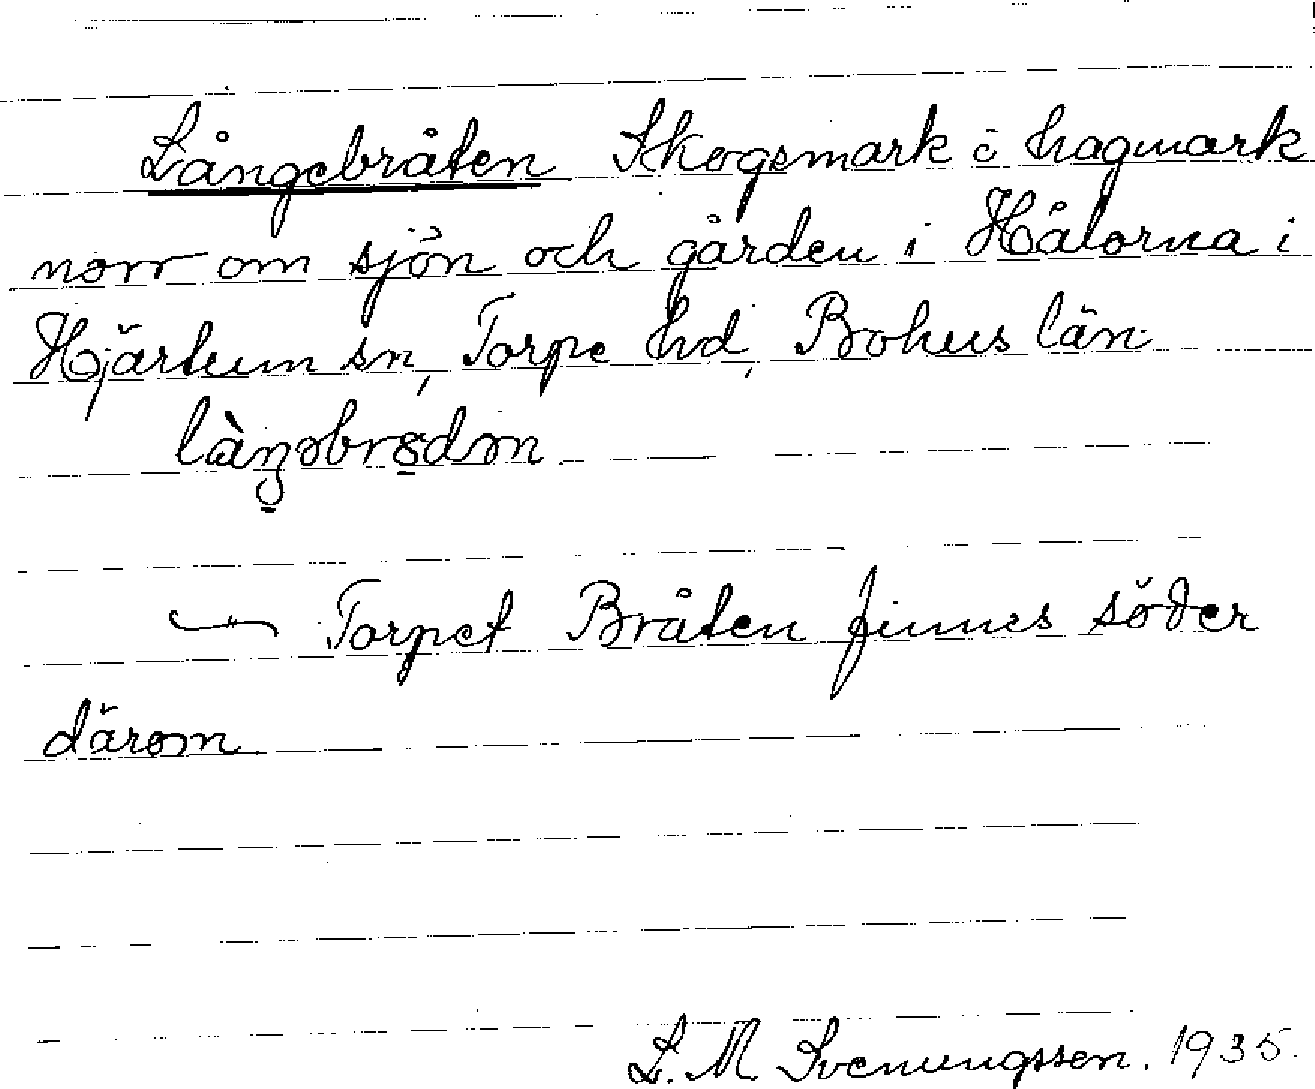 Långebråten Skogsmark i hagmark
norr om sjön och gården i Hålorna i
Hjärtum sn, Torpe hd, Bohus län
Torpet Bråten finnes söder
därom
L. M. Svenungsson. 1935.